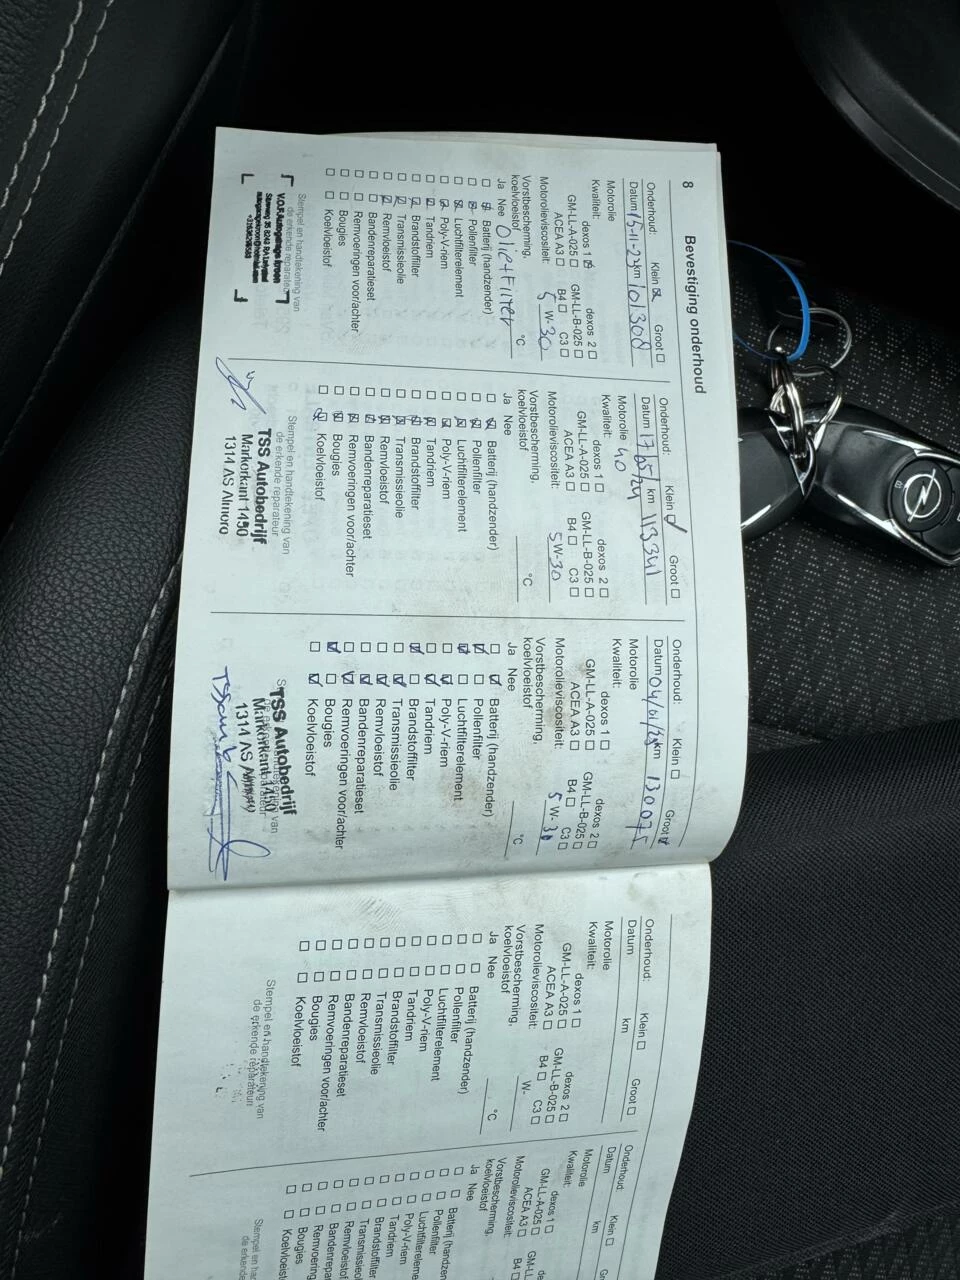 8
Bevestiging onderhoud
Onderhoud: Klein ☒ Groot ☐
Datum 15-11-23 km 101308
Motorolie
Kwaliteit: dexos 1 ☒ dexos 2 ☐
GM-LL-A-025 ☐ GM-LL-B-025 ☐
ACEA A3 ☐ B4 ☐ C3 ☐
Motorolieviscositeit: 5 W-30
Vorstbescherming,
koelvloeistof °C
Ja Nee Olie+Filter
☐ ☒ Batterij (handzender)
☐ ☒ Pollenfilter
☐ ☒ Luchtfilterelement
☐ ☒ Poly-V-riem
☐ ☒ Tandriem
☐ ☒ Brandstoffilter
☐ ☒ Transmissieolie
☐ ☒ Remvloeistof
☐ ☐ Bandenreparatieset
☐ ☐ Remvoeringen voor/achter
☐ ☐ Bougies
☐ ☐ Koelvloeistof
Stempel en handtekening van
de erkende reparateur
V.O.F. Autogarage
Onderhoud: Klein ☑ Groot ☐
Datum 17/05/24 km 113341
Motorolie 40
Kwaliteit: dexos 1 ☐ dexos 2 ☐
GM-LL-A-025 ☐ GM-LL-B-025 ☐
ACEA A3 ☐ B4 ☐ C3 ☐
Motorolieviscositeit: 5W-30
Vorstbescherming,
koelvloeistof °C
Ja Nee
☐ ☒ Batterij (handzender)
☐ ☒ Pollenfilter
☐ ☒ Luchtfilterelement
☐ ☒ Poly-V-riem
☐ ☒ Tandriem
☐ ☒ Brandstoffilter
☐ ☒ Transmissieolie
☐ ☒ Remvloeistof
☐ ☒ Bandenreparatieset
☐ ☒ Remvoeringen voor/achter
☐ ☒ Bougies
☐ ☒ Koelvloeistof
Stempel en handtekening van
de erkende reparateur
TSS Autobedrijf
Markerkant 1450
1314 AS Almere
Onderhoud: Klein ☐ Groot ☑
Datum 04/01/25 km 130075
Motorolie
Kwaliteit: dexos 1 ☐ dexos 2 ☐
GM-LL-A-025 ☐ GM-LL-B-025 ☐
ACEA A3 ☐ B4 ☐ C3 ☐
Motorolieviscositeit: 5 W-30
Vorstbescherming,
koelvloeistof °C
Ja Nee
☐ ☑ Batterij (handzender)
☑ ☐ Pollenfilter
☑ ☐ Luchtfilterelement
☐ ☑ Poly-V-riem
☐ ☑ Tandriem
☑ ☐ Brandstoffilter
☐ ☑ Transmissieolie
☐ ☑ Remvloeistof
☐ ☑ Bandenreparatieset
☐ ☑ Remvoeringen voor/achter
☑ ☐ Bougies
☐ ☑ Koelvloeistof
TSS Autobedrijf
Markerkant 1450
1314 AS
Onderhoud: Klein ☐ Groot ☐
Datum km
Motorolie
Kwaliteit: dexos 1 ☐ dexos 2 ☐
GM-LL-A-025 ☐ GM-LL-B-025 ☐
ACEA A3 ☐ B4 ☐ C3 ☐
Motorolieviscositeit: W-
Vorstbescherming,
koelvloeistof °C
Ja Nee
☐ ☐ Batterij (handzender)
☐ ☐ Pollenfilter
☐ ☐ Luchtfilterelement
☐ ☐ Poly-V-riem
☐ ☐ Tandriem
☐ ☐ Brandstoffilter
☐ ☐ Transmissieolie
☐ ☐ Remvloeistof
☐ ☐ Bandenreparatieset
☐ ☐ Remvoeringen voor/achter
☐ ☐ Bougies
☐ ☐ Koelvloeistof
Stempel en handtekening van
de erkende reparateur
Onderhoud: Klein ☐
Datum km
Motorolie
Kwaliteit: dexos 1 ☐
GM-LL-A-025 ☐
ACEA A3 ☐ B4
Motorolieviscositeit:
Vorstbescherming,
koelvloeistof
Ja Nee
☐ ☐ Batterij (handzender)
☐ ☐ Pollenfilter
☐ ☐ Luchtfilterelement
☐ ☐ Poly-V-riem
☐ ☐ Tandriem
☐ ☐ Brandstoffilter
☐ ☐ Transmissieolie
☐ ☐ Remvloeistof
☐ ☐ Bandenrepa
☐ ☐ Remvoering
☐ ☐ Bougies
☐ ☐ Koelvloeistof
Stempel en ha
de erkende